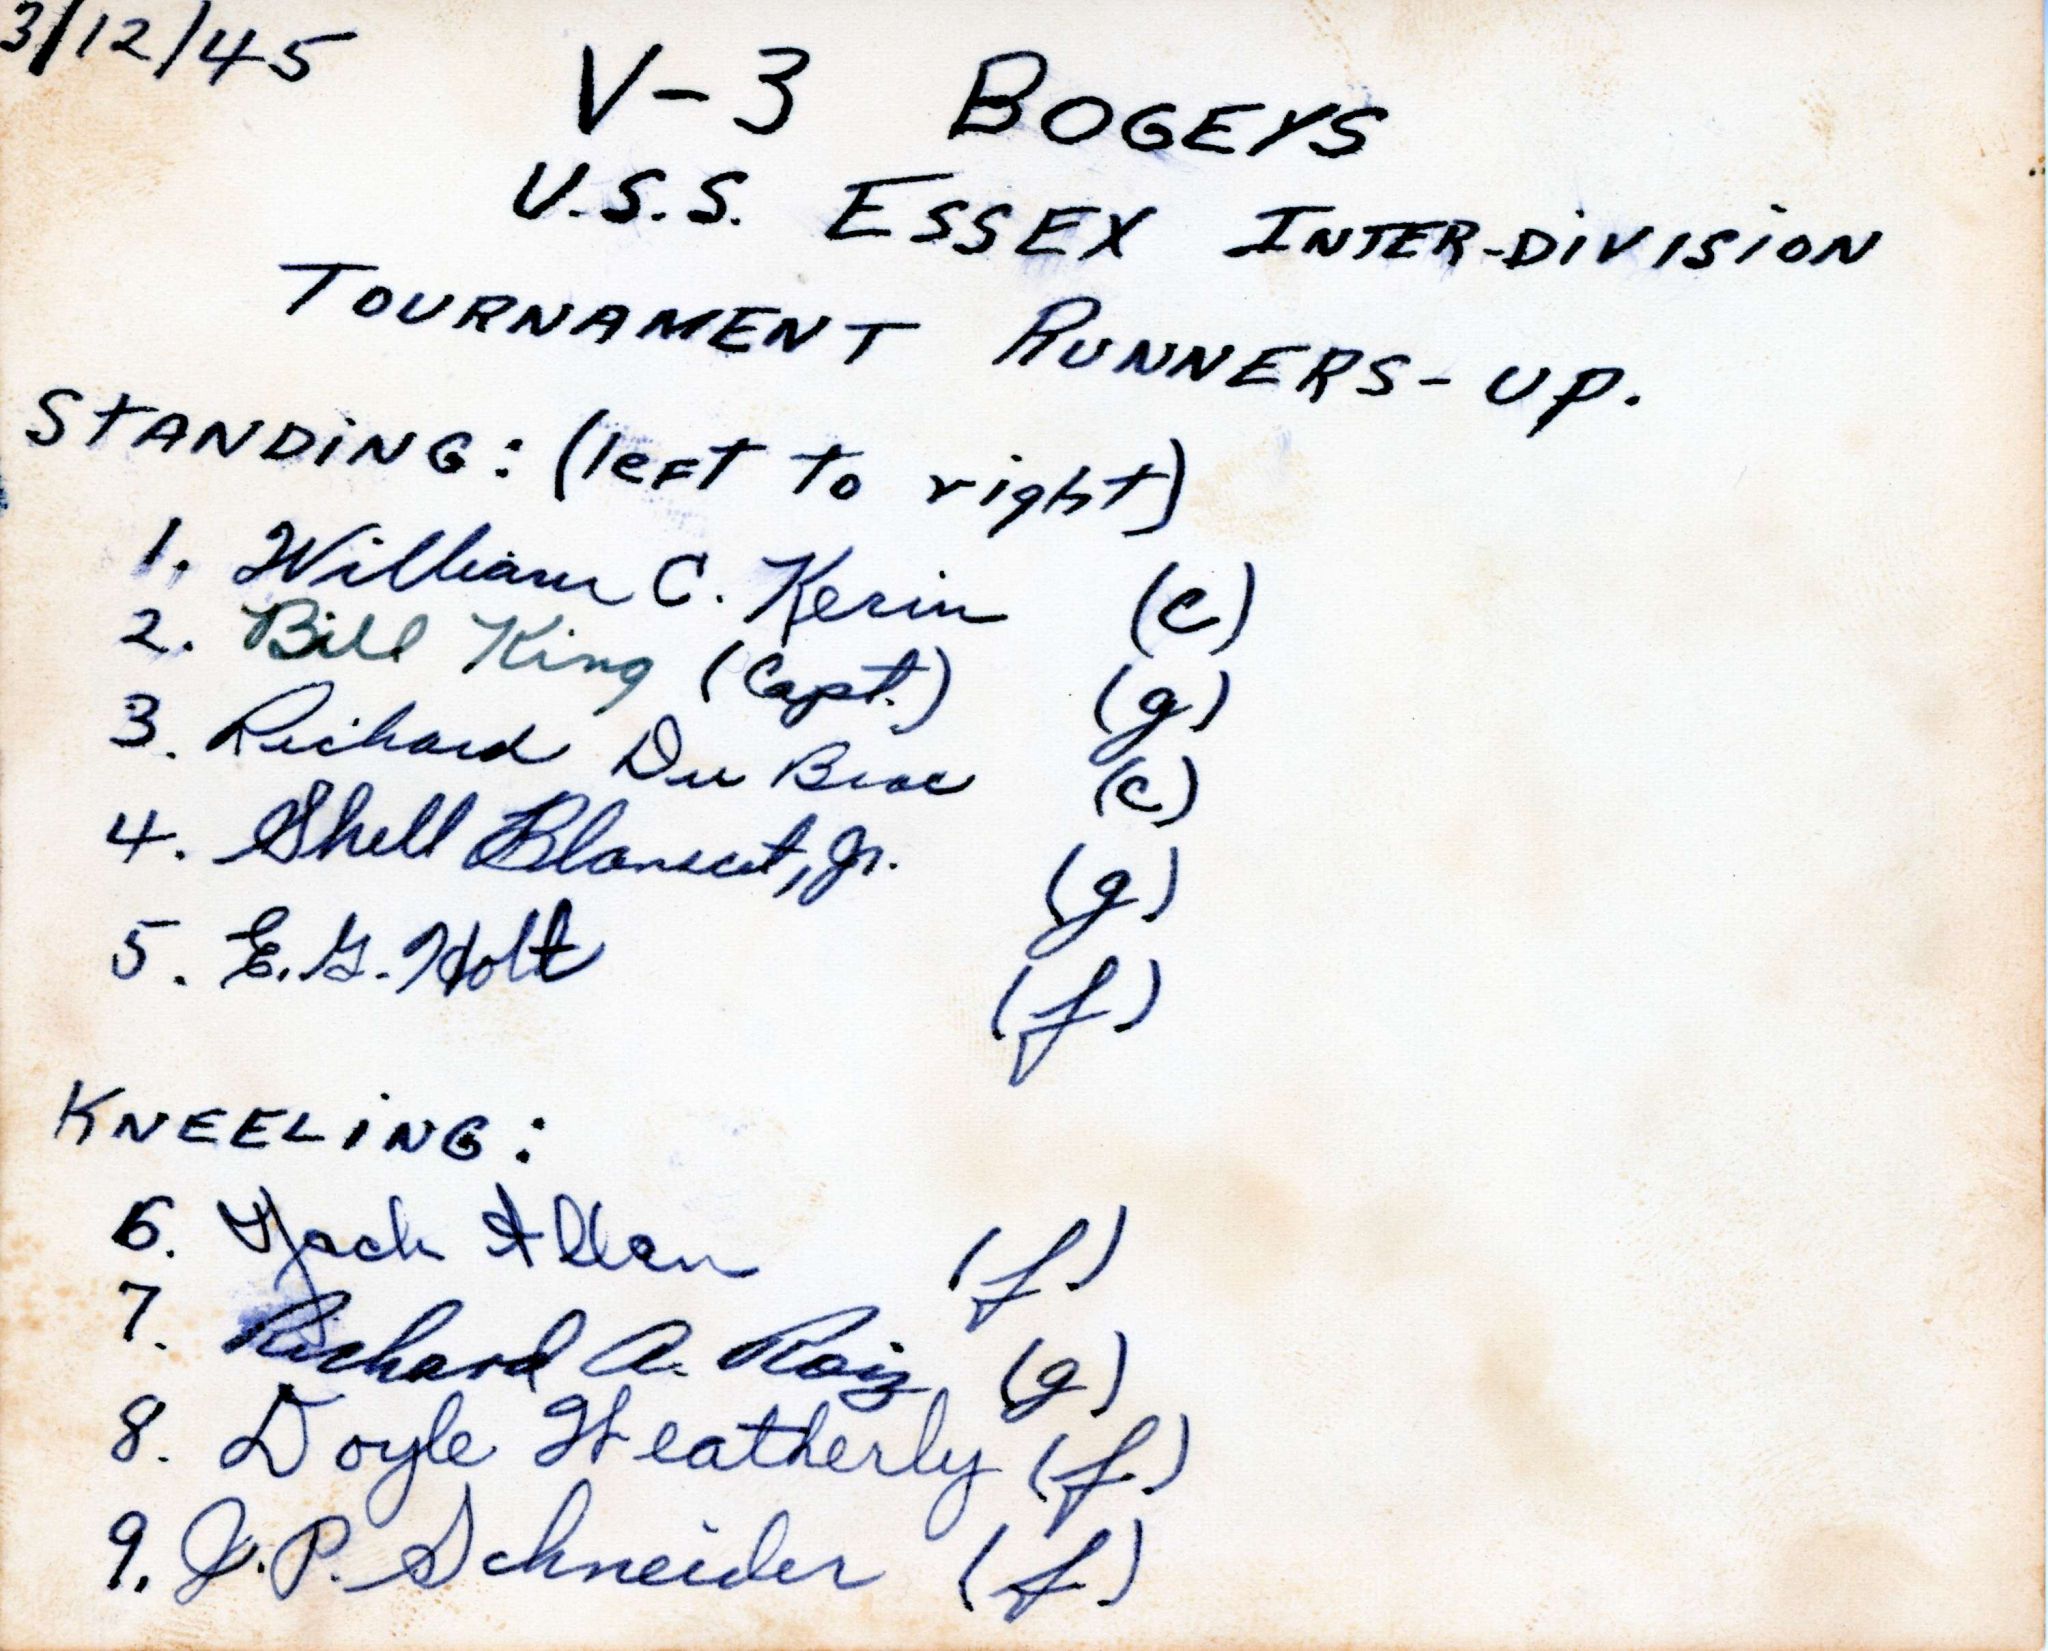 3/12/45
V-3 BOGEYS
U.S.S. ESSEX INTER-DIVISION
TOURNAMENT RUNNERS-UP.
STANDING: (left to right)
1. William C. Kerin (c)
2. Bill King (Capt.) (g)
3. Richard Du Brac (c)
4. Shell Blanscet, Jr. (g)
5. E. G. Holt (f)
KNEELING:
6. Jack Allan (f)
7. Richard A. Roiz (g)
8. Doyle Heatherly (f)
9. J. P. Schneider (f)